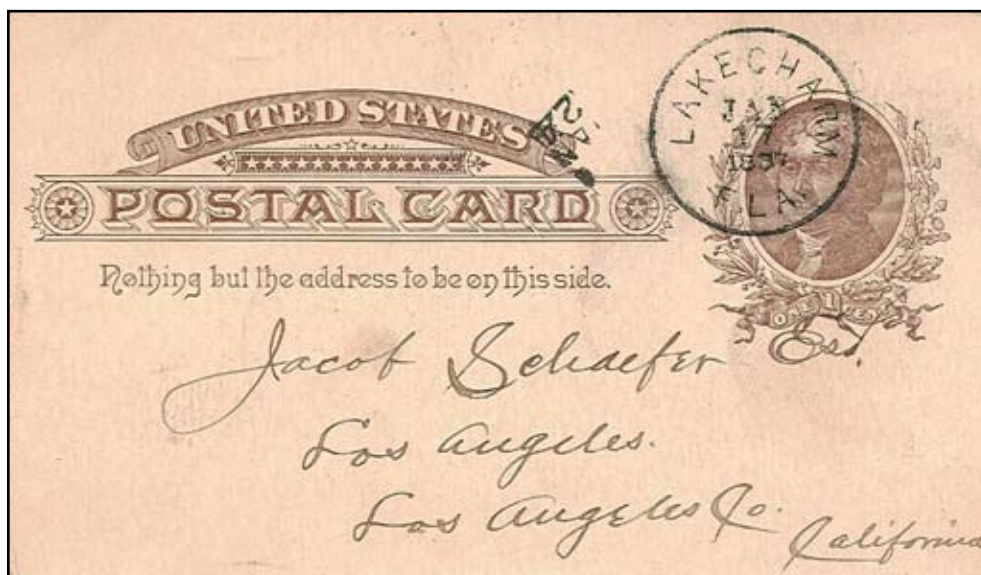 UNITED STATES
POSTAL CARD
Nothing but the address to be on this side.
LAKECHARM
JAN
17
LA.
ONE 1 CENT
Jacob Schaefer Esq.
Los Angeles.
Los Angeles Co.
California